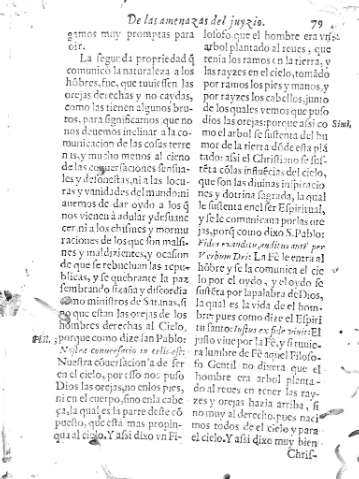 De las amenazas del juyzio. 79
gamos muy promptas para
oir.
La segunda propriedad q̃
comunicò la naturaleza a los
hõbres, fue, que tuuiessen las
orejas derechas y no caydas,
como las tienen algunos bru-
tos, para significarnos que no
nos deuemos inclinar a la co-
municacion de las cosas terre
nas, y mucho menos al cieno
de las conuersaciones sensua-
les y deshonestas, ni a las locu-
ras y vanidades del mundo: ni
auemos de dar oydo a los q̃
nos vienen à adular y desuane
cer: ni a los chismes y mormu
raciones de los que son malsi-
nes y maldizientes, y ocasion
de que se rebueluan las repu-
blicas, y se quebrante la paz
sembrando zizaña y discordia
como ministros de Satanas, si
no que estan las orejas de los
hombres derechas al Cielo,
porque como dize san Pablo:
Nostra conuersatio in cælis est:
Nuestra cõuersacion ha de ser
en el cielo, por esso nos puso
Dios las orejas, no en los pies,
ni en el cuerpo, sino en la cabe
ça, la qual es la parte deste cõ
puesto, que està mas propin-
qua al cielo. Y assi dixo vn Fi-
Phil. 3
losofo, que el hombre era vn
arbol plantado al reues, que
tenia los ramos en la tierra, y
las rayzes en el cielo, tomãdo
por ramos los pies y manos, y
por rayzes los cabellos, junto
de los quales vemos que puso
dios las orejas: porque assi co
mo el arbol se sustenta del hu
mor de la tierra dõde esta plã
tado: assi el Christiano se sus-
tẽta cõ las influẽcias del cielo,
que son las diuinas inspiracio
nes y dotrina sagrada, la qual
le sustenta en el ser Espiritual,
y se le comunica por las ore
jas, porq̃ como dixo S. Pablo:
Fides ex auditu, auditus autẽ per
Verbum Dei: La Fè le entra al
hõbre y se la comunica el cie
lo por el oydo, y el oydo se
sustẽta por la palabra de Dios,
la qual es la vida de el hom-
bre: pues como dize el Espiri
tu santo: Iustus ex fide viuit: El
justo viue por la Fè, y si tuuie
ra lumbre de Fè aquel Filoso-
fo Gentil no dixera que el
hombre era arbol planta-
do al reues en tener las ray-
zes y orejas hazia arriba, si
no muy al derecho, pues naci
mos todos de el cielo y para
el cielo. Y assi dixo muy bien
Chris-
Simil.